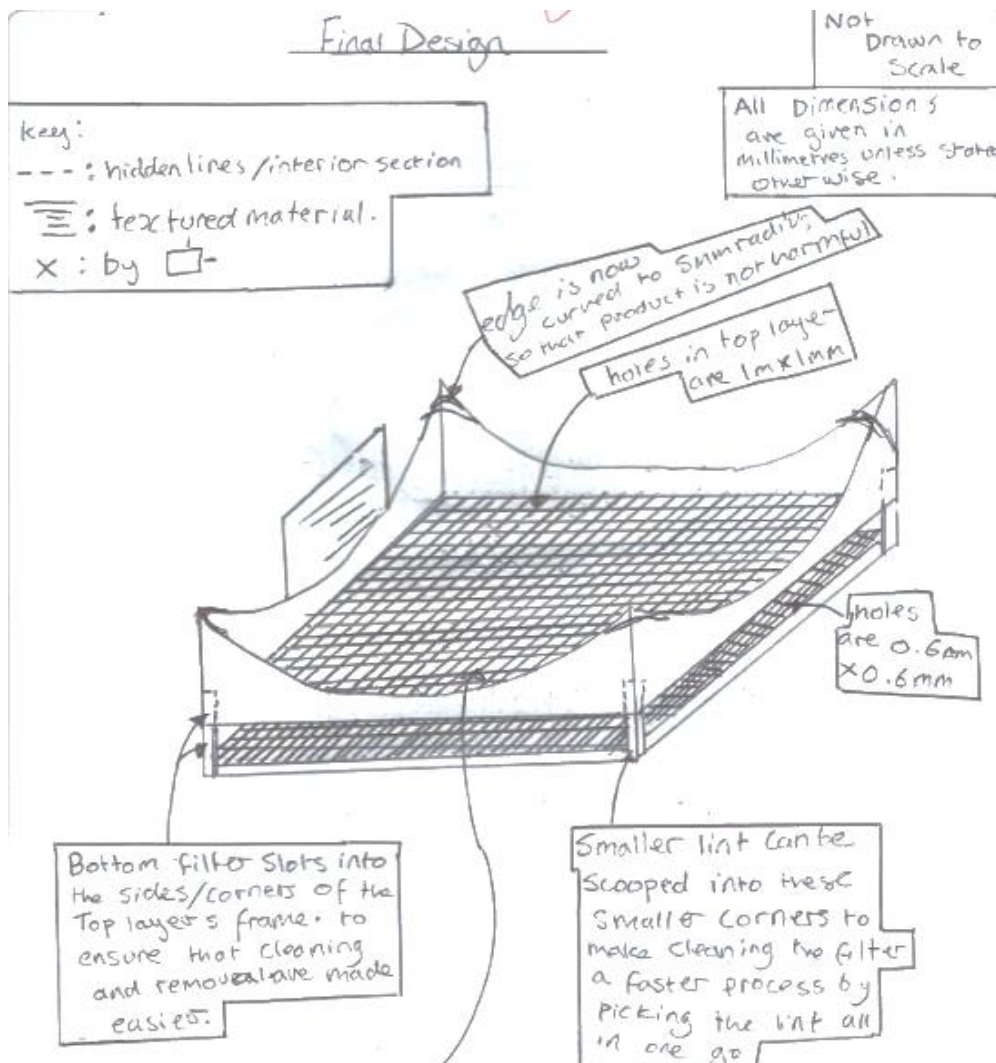 Final Design
Not
Drawn to
Scale
All Dimensions
are given in
millimetres unless state
otherwise.
key:
---: hidden lines/interior section
: textured material.
X : by
edge is now
curved to 5mm radius
so that product is not harmful
holes in top layer
are 1m x 1mm
holes
are 0.6mm
x0.6mm
Bottom filter slots into
the sides/corners of the
Top layers frame. to
ensure that cleaning
and removal are made
easier.
Smaller lint can be
scooped into these
smaller corners to
make cleaning the filter
a faster process by
picking the lint all
in one go